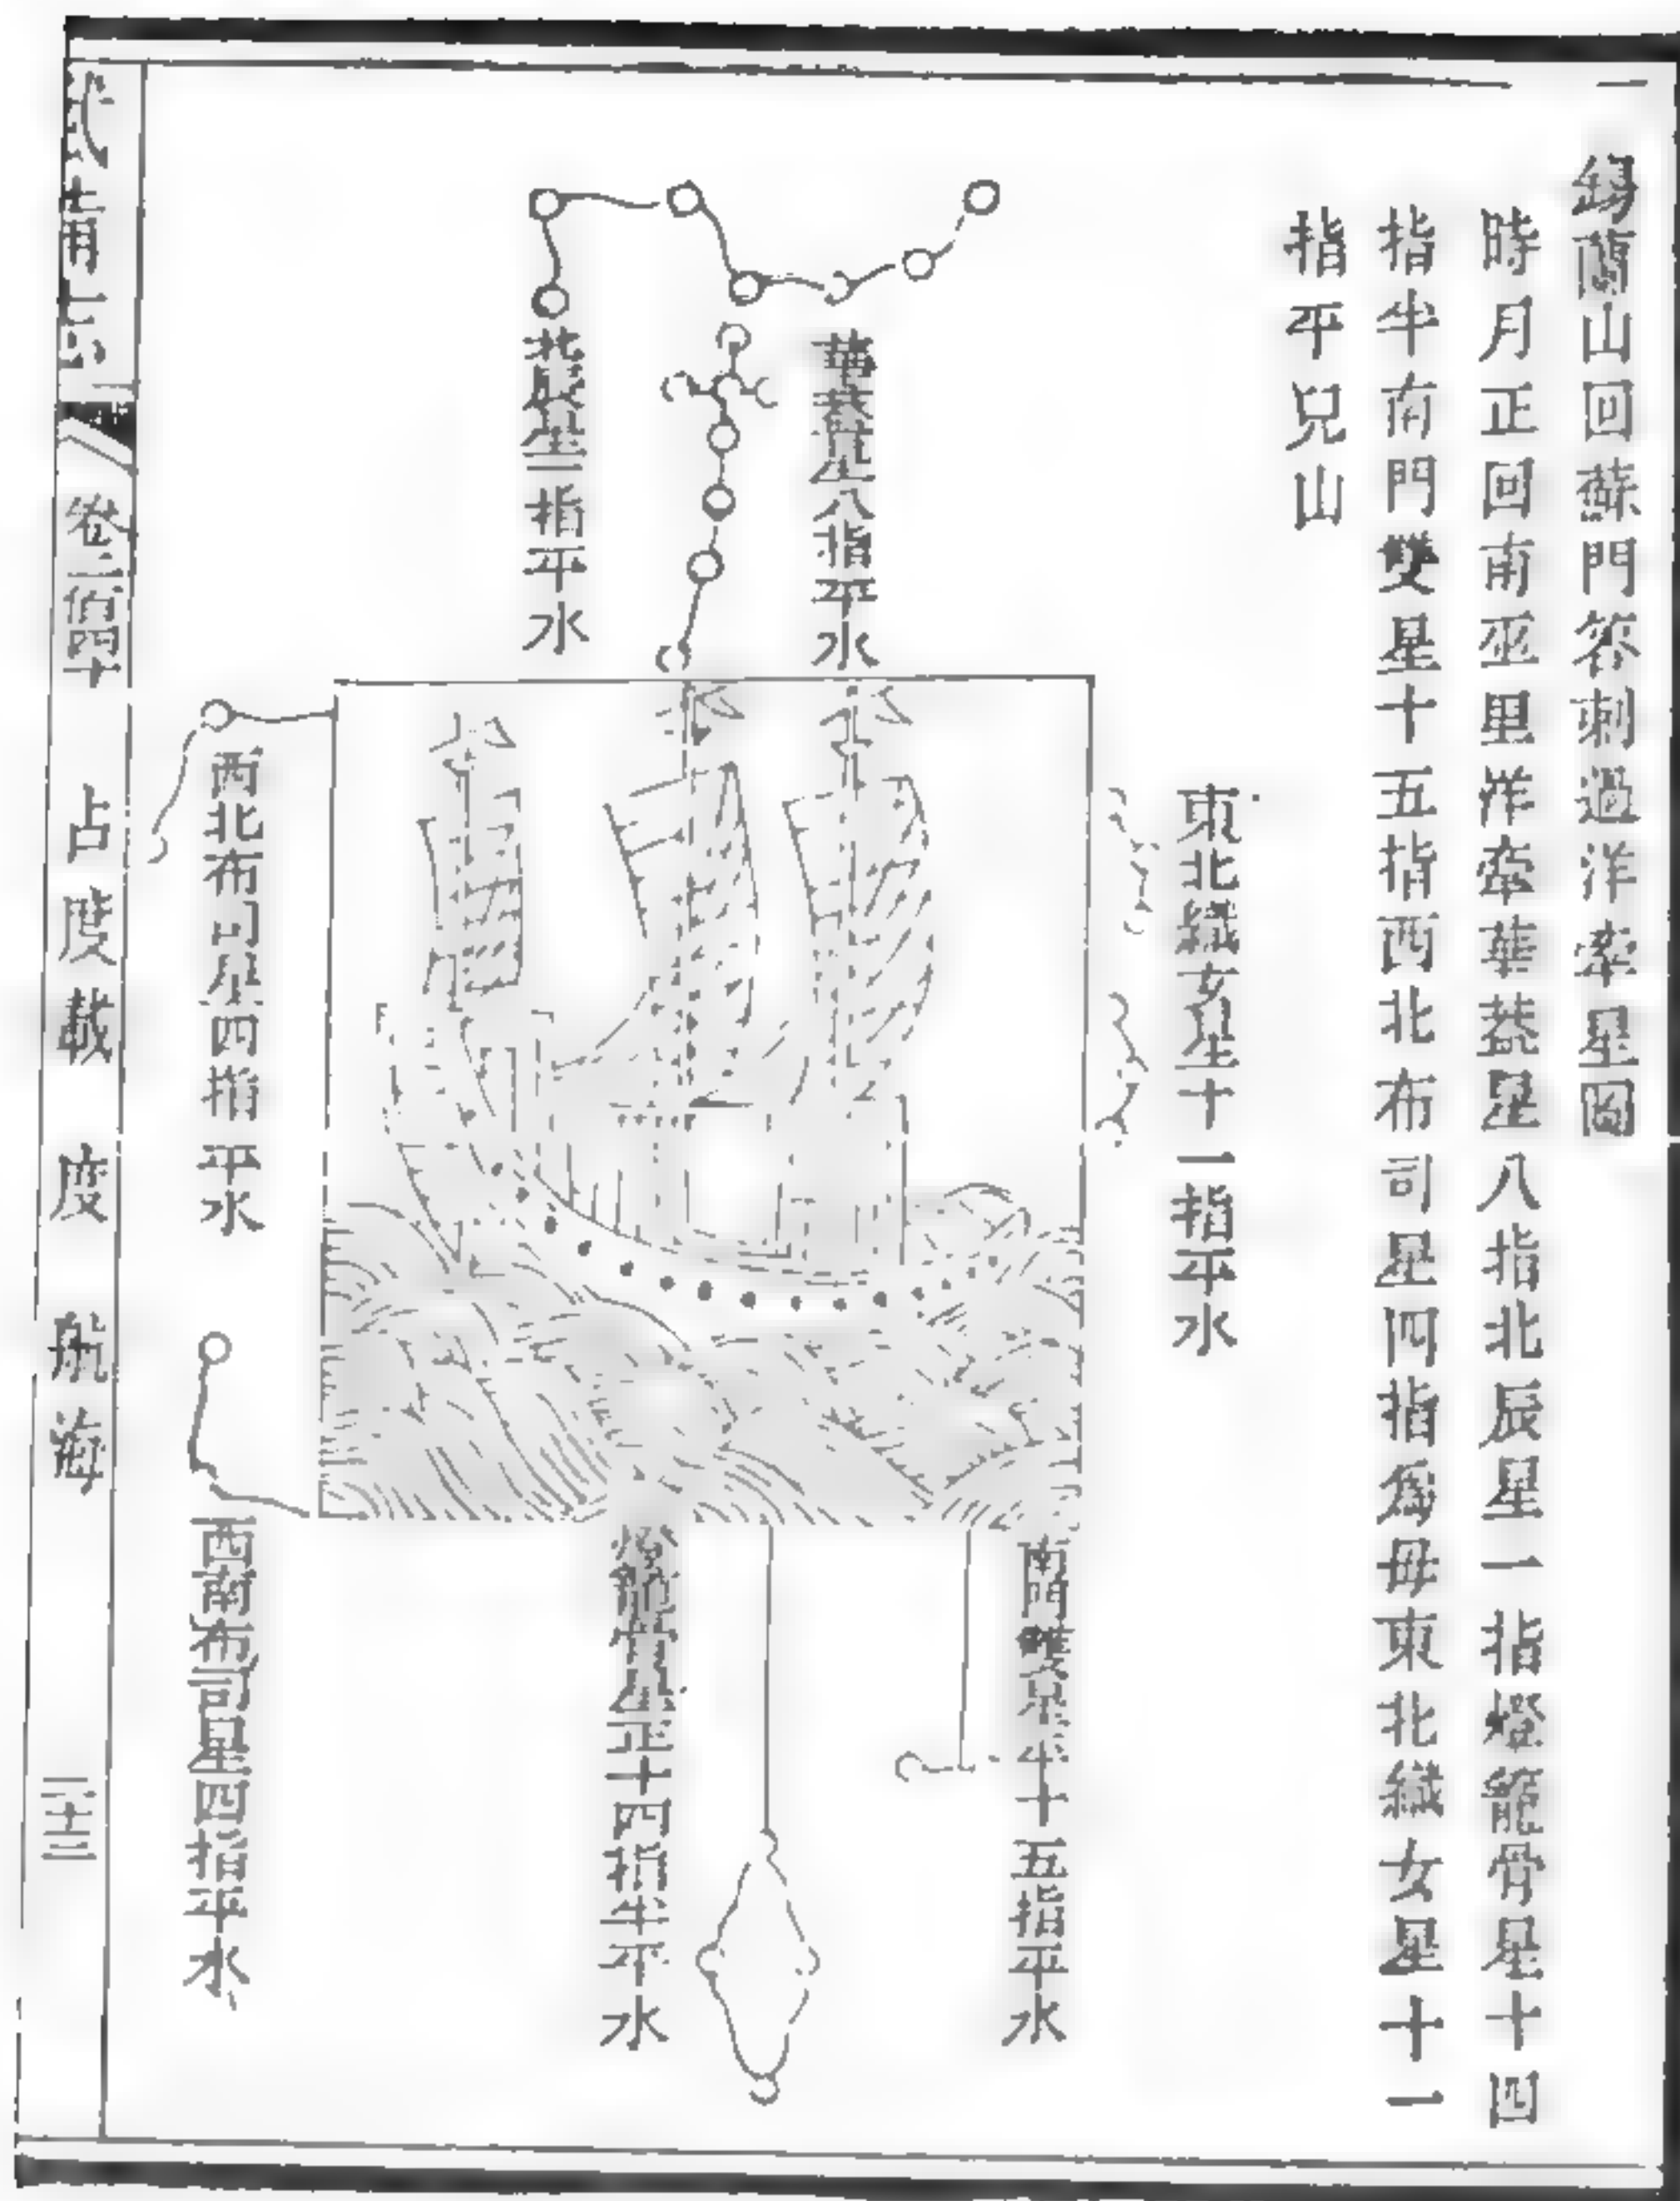 錫蘭山回蘇門答剌過洋牽星圖
時月正回南巫里洋牽華蓋星八指北辰星一指燈籠骨星十四
指半南門雙星十五指西北布司星四指為母東北織女星十一
指平兒山
華蓋星八指平水
北辰星一指平水
東北織女星十一指平水
西北布司星四指平水
西南布司星四指平水
燈籠骨星正十四指半平水
南門雙星平十五指平水
武備志
卷二百四十
占度載
度
航海
二十三